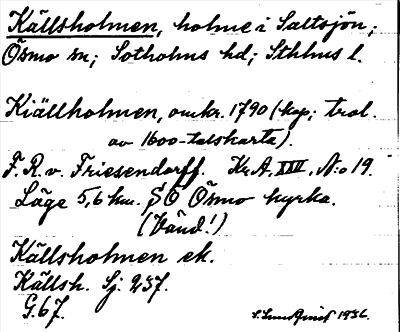 Källsholmen, holme i Saltsjön;
Ösmo sn; Sotholms hd; Sthlms l.
Kiällholmen, omkr. 1790 (kop; trol.
av 1600-talskarta).
F. R. v. Friesendorff. Kr.A. XXII, No 19.
Läge 5,6 km. SÖ Ösmo kyrka.
(Vänd!)
Källsholmen ek.
Källsh. Sj. 237.
G.67.
1936.